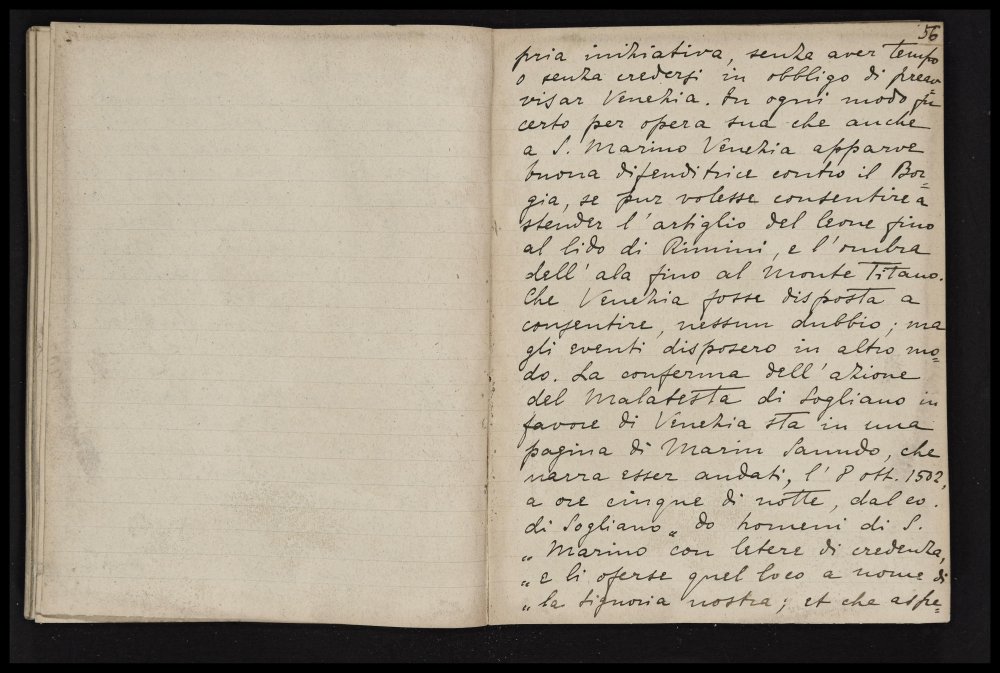 56
pria iniziativa, senza aver tempo
o senza credersi in obbligo di preav
visar Venezia. In ogni modo, fu
certo per opera sua che anche
a S. Marino Venezia apparve
buona difenditrice contro il Bor=
gia, se pur volesse consentire a
stender l'artiglio del leone fino
al lido di Rimini, e l'ombra
dell'ala fino al Monte Titano.
Che Venezia fosse disposta a
consentire, nessun dubbio; ma
gli eventi disposero in altro mo=
do. La conferma dell'azione
del Malatesta di Sogliano in
favore di Venezia sta in una
pagina di Marin Sanudo, che
narra esser andati, l'8 ott. 1502,
a ore cinque di notte, dal co.
di Sogliano „ do homeni di S.
„ Marino con letere di credenza,
„ e li oferse quel loco a nome di
„ la Signoria nostra; et che aspe=